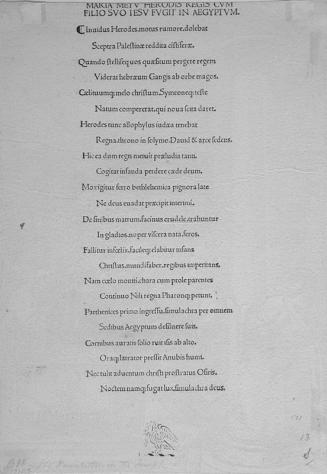 MARIA METV HERODIS REGIS CVM
FILIO SVO IESV FVGIT IN AEGYPTVM.
Inuidus Herodes, motus rumore, dolebat
Sceptra Palestinæ reddita
Quando
Viderat hebræum Gangis ab orbe magos.
christum, Symeoneq; teste
Natum compererat, qui noua scita daret.
Herodes tunc allophylus iudæa tenebat
Regna, throno in solymo, Dauid & arce sedens.
Hic ea dum regis metuit præludia tanti,
Cogitat infanda perdere cæde deum.
Mox igitur ferro bethlehemica pignora late
Ne deus euadat præcipit interimi.
De sinibus matrum, facinus crudele, trahuntur
In gladios, noper viscera nata, feros.
Fallitur infœlix, facileq; elabitur infans
Christus, mundifaber, regibus imperitans.
Nam cœlo moniti, chara cum prole parentes
Continuo Nili regna Pharonq; petunt,
Parthenices primo ingressu, simulachra per omnem
Sedibus Aegyptum desiluere suis.
Cornibus auratis solio ruit isis ab alto,
Ora q; latrator pressit Anubis humi.
Nec tulit aduentum christi prostratus Osiris,
Noctem namq; fugat lux, simulachra deus.